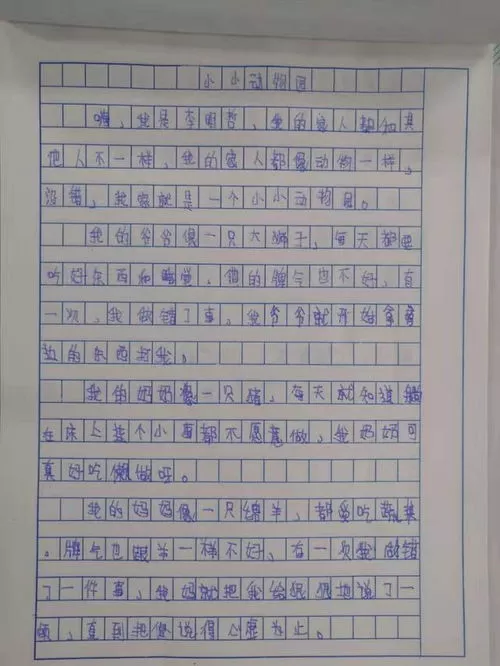 小小动物园
嗨，我是李明哲，我的家人都和其
他人不一样，我的家人都像动物一样。
没错，我家就是一个小小动物园。
我的爷爷像一只大狮子，每天都要
吃好东西和睡觉，他的脾气也不好，有
一次，我做错了事。我爷爷就开始拿旁
边的东西打我。
我的奶奶像一只猪，每天就知道躺
在床上连个小事都不愿意做，我奶奶可
真好吃懒做呀。
我的妈妈像一只绵羊，都爱吃蔬菜
。脾气也跟羊一样不好，有一次我做错
了一件事，我妈就把我给狠狠地说了一
顿，直到把我说得心虚为止。